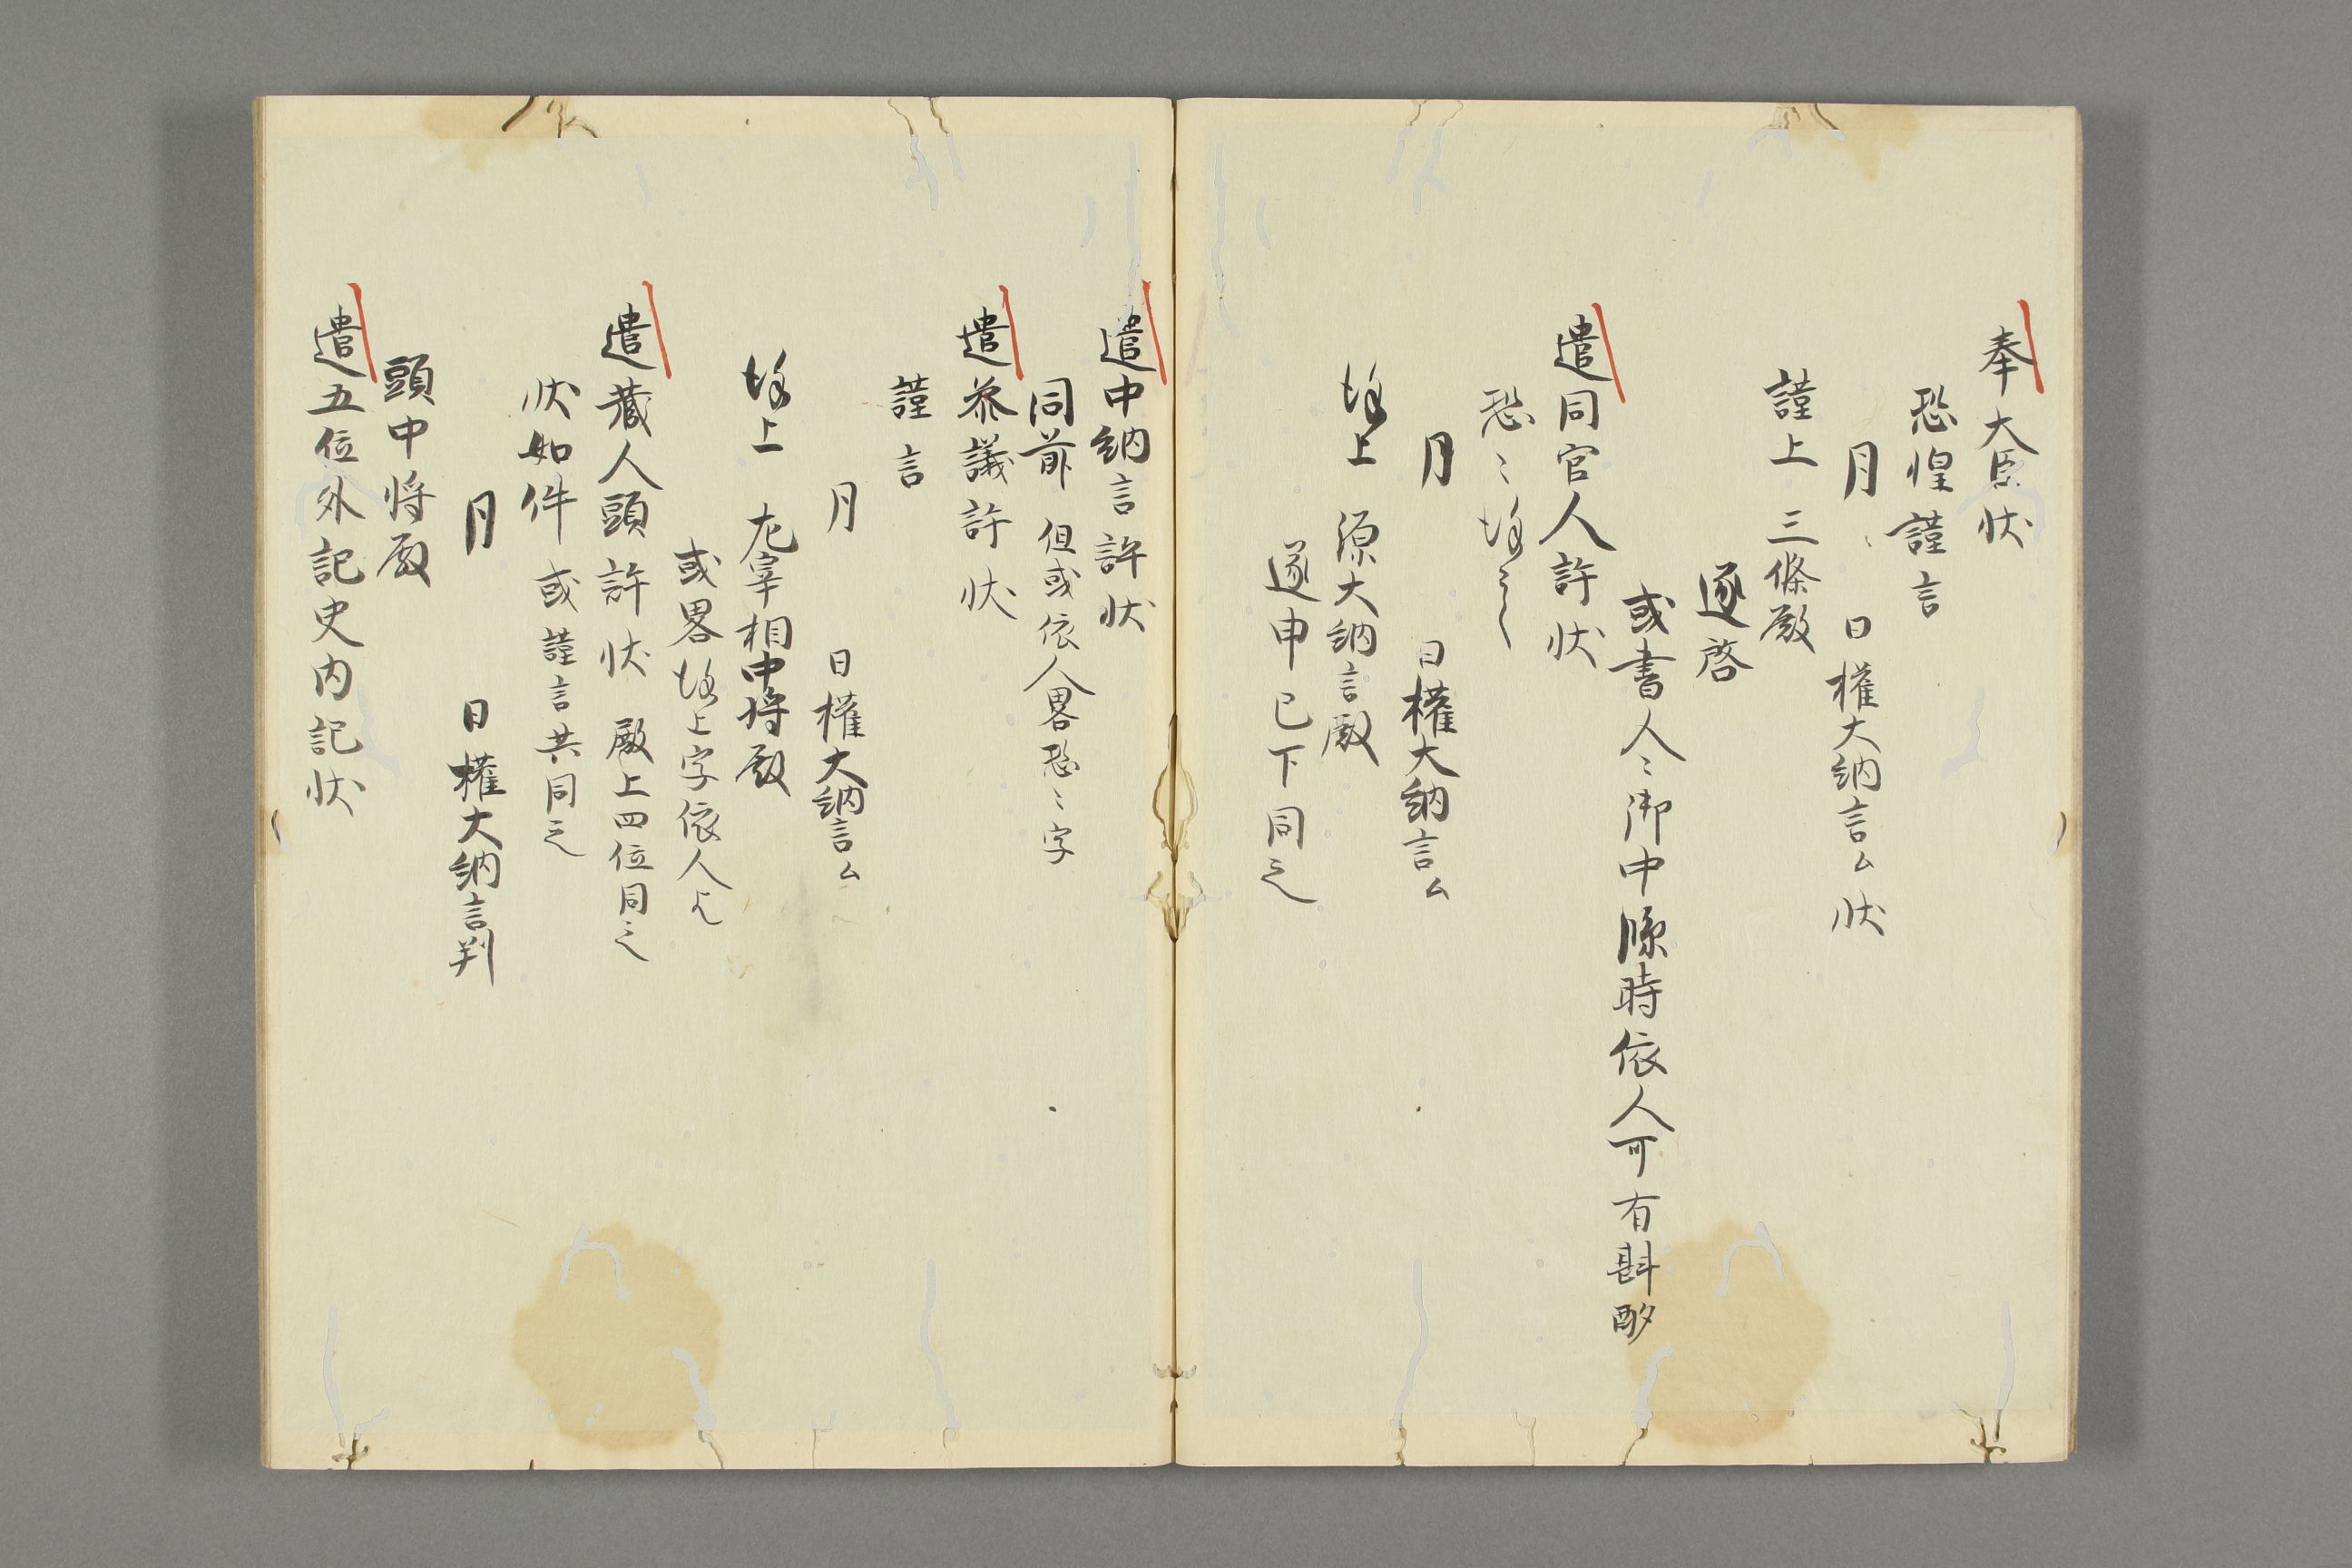 奉大臣状
恐惶謹言
月 日権大納言ム状
謹上 三條殿
逐啓
或書人〻御中随時依人可有斟酌
遣同官人許状
恐〻謹言
月 日権大納言ム
謹上 源大納言殿
逐申已下同之
遣中納言許状
同前 但或依人畧恐〻字
遣参議許状
謹言
月 日権大納言ム
謹上 左宰相中将殿
或畧謹上字依人也
遣蔵人頭許状 殿上四位同之
状如件 或謹言共同之
月 日権大納言判
頭中将殿
遣五位外記史内記状